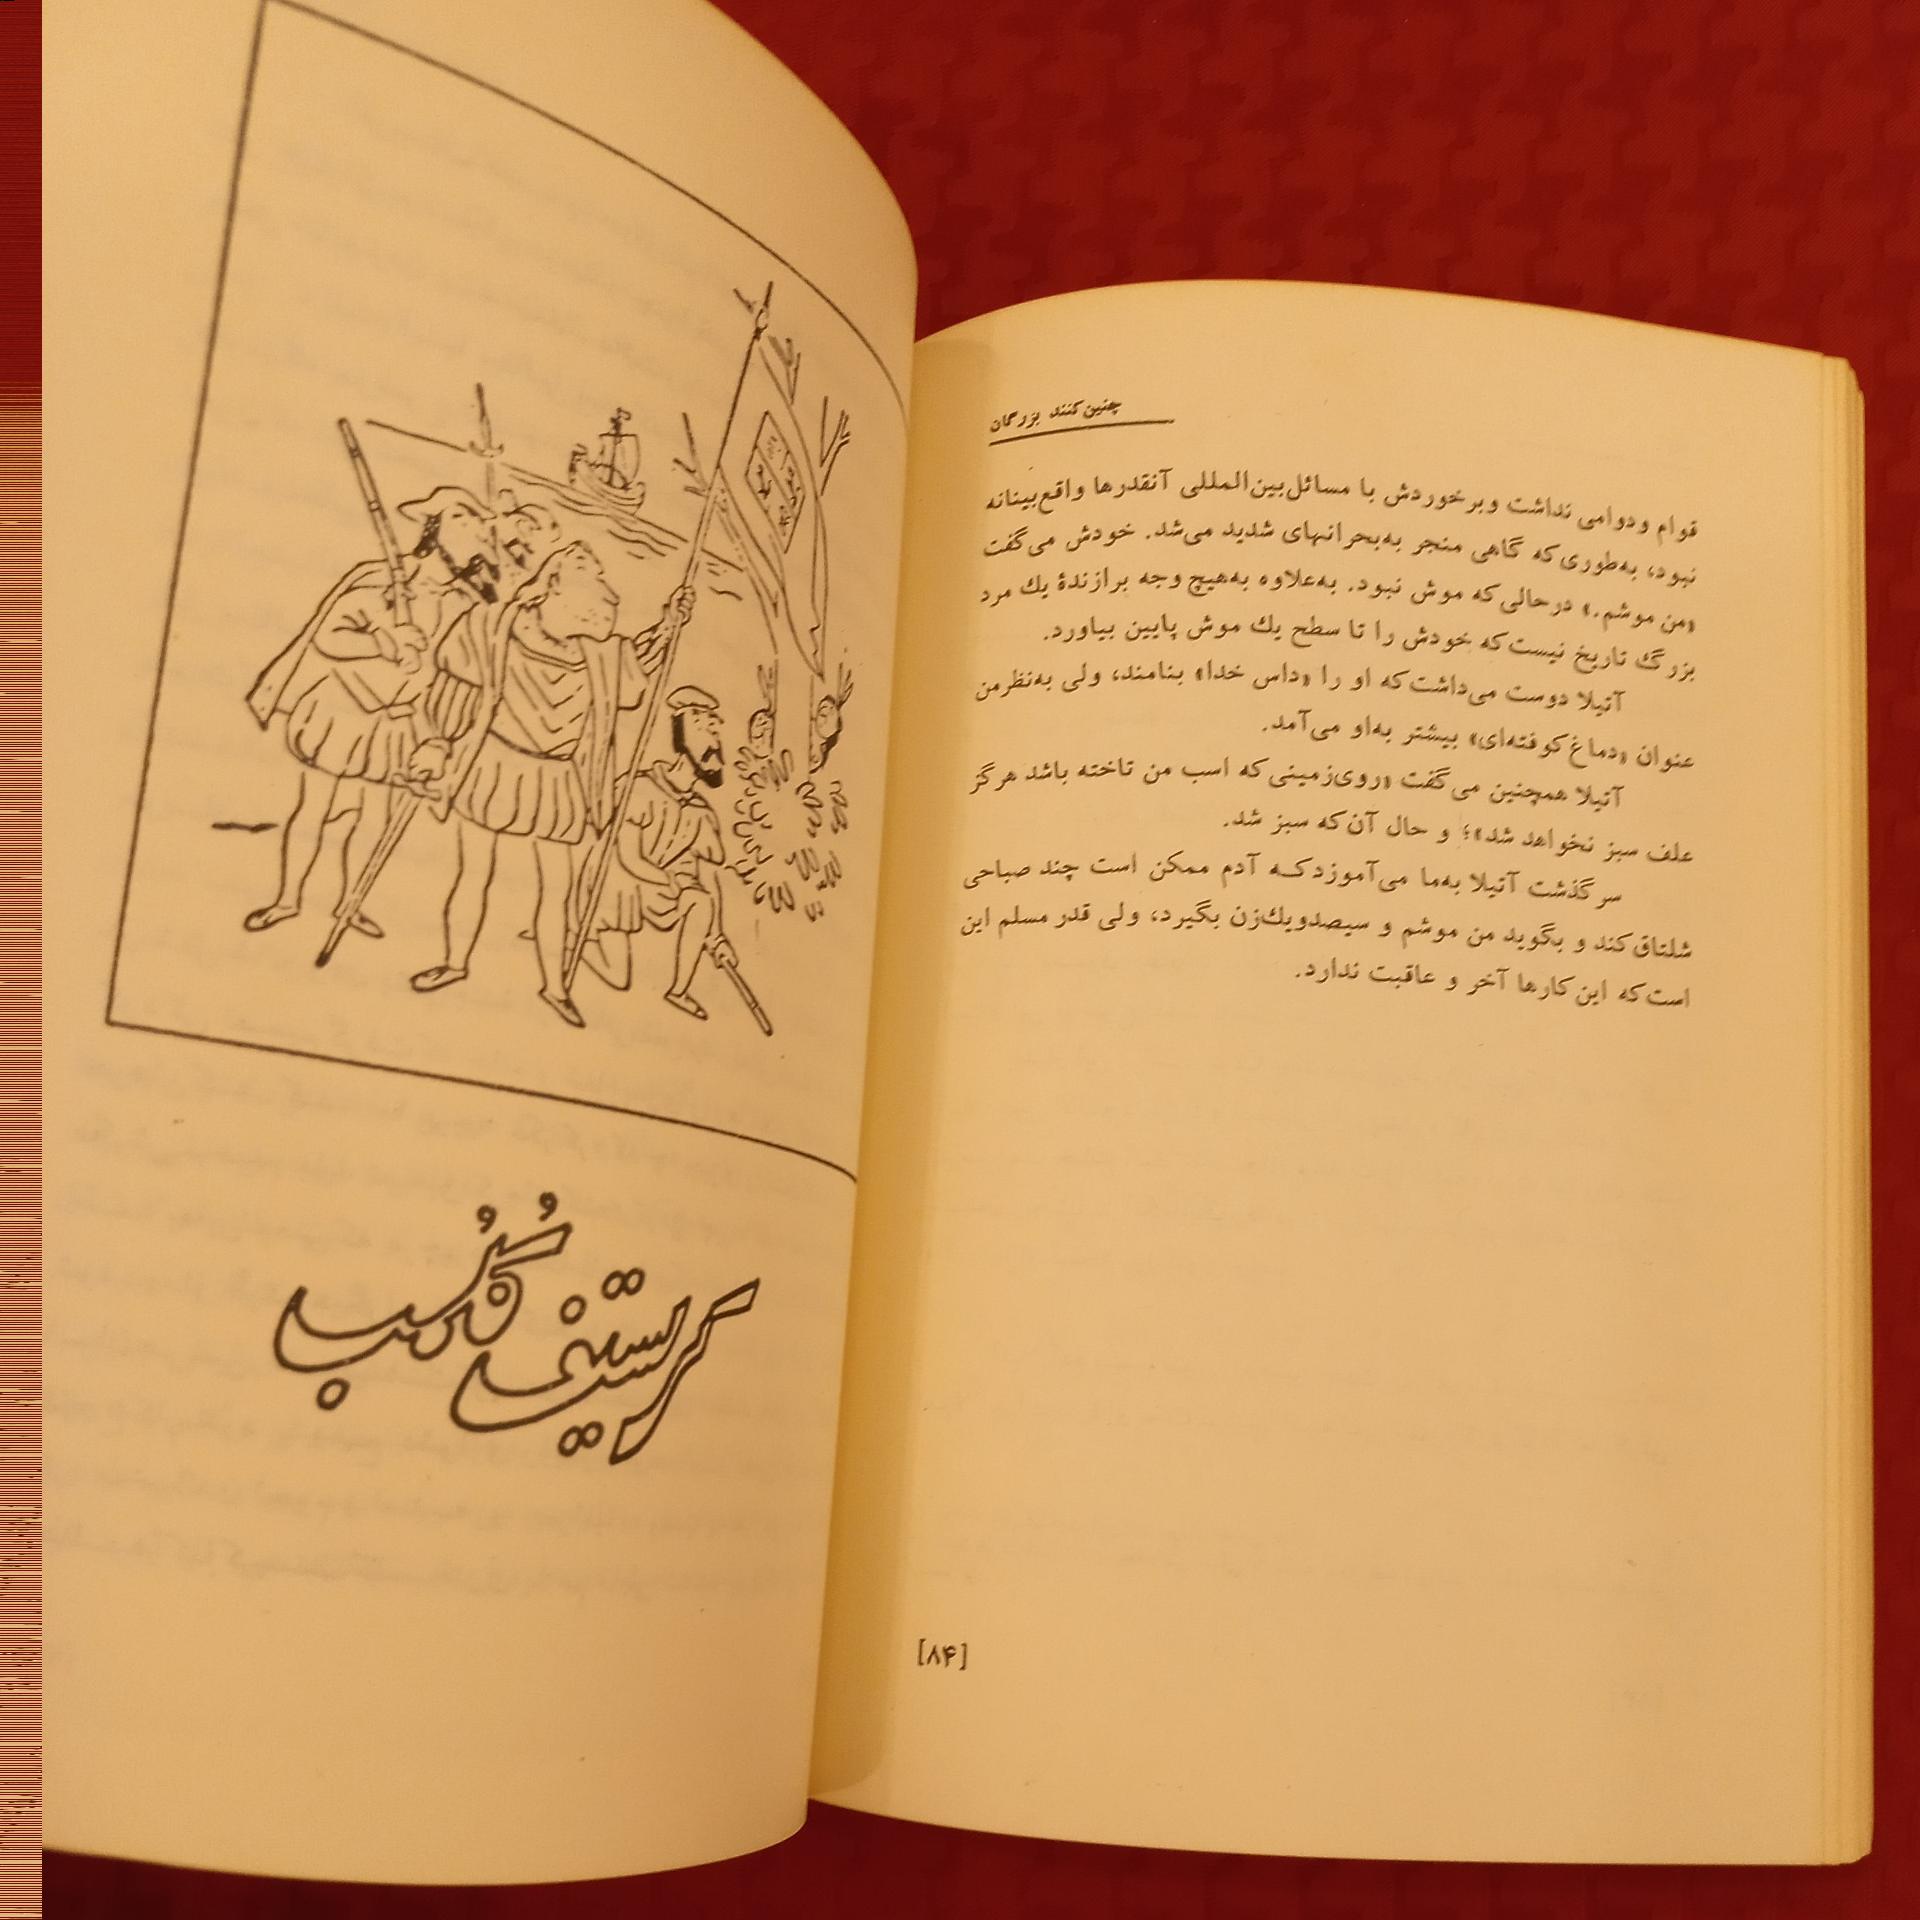 چنین‌کنند بزرگان
قوام ودوامی نداشت وبرخوردش با مسائل‌بین‌المللی آنقدرها واقع‌بینانه
نبود، به‌طوری‌که گاهی منجر به‌بحرانهای شدید می‌شد. خودش می‌گفت
«من موشم.» درحالی‌که موش نبود. به‌علاوه به‌هیچ وجه برازندهٔ یك مرد
بزرگ تاریخ نیست‌که خودش را تا سطح یك موش پایین بیاورد.
آتیلا دوست می‌داشت‌که او را «داس خدا» بنامند، ولی به‌نظرمن
عنوان «دماغ‌کوفته‌ای» بیشتر به‌او می‌آمد.
آتیلا همچنین می‌گفت «روی‌زمینی‌که اسب من تاخته باشد هرگز
علف سبز نخواهد شد»؛ و حال آن‌که سبز شد.
سرگذشت آتیلا به‌ما می‌آموزدکه آدم ممکن است چند صباحی
شلتاق‌کند و بگوید من موشم و سیصدویك‌زن بگیرد، ولی قدر مسلم این
است‌که این‌کارها آخر و عاقبت ندارد.
[۸۴]
کریستف
کلمب